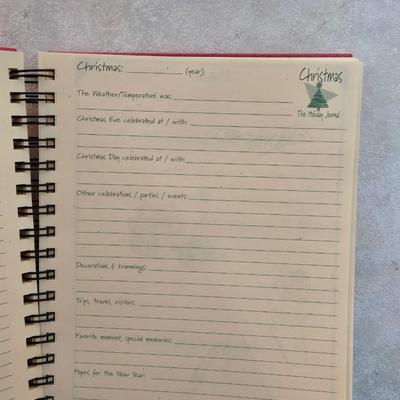 Christmas:
(year)
Christmas
The Holiday Journal
The Weather/Temperature was:
Christmas Eve celebrated at / with:
Christmas Day celebrated at / with:
Other celebrations / parties / events:
Decorations & trimmings:
Trips, travel, visitors:
Favorite moment, special memories:
Hopes for the New Year: